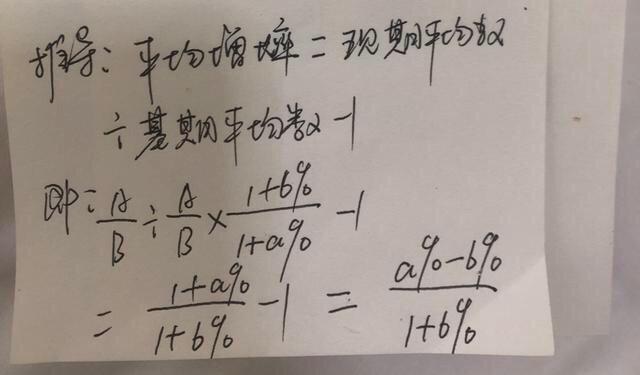 推导：平均增率＝现期平均数
÷基期平均数－1
即：A/B÷A/B×(1+b%)/(1+a%)－1
＝(1+a%)/(1+b%)－1＝(a%－b%)/(1+b%)